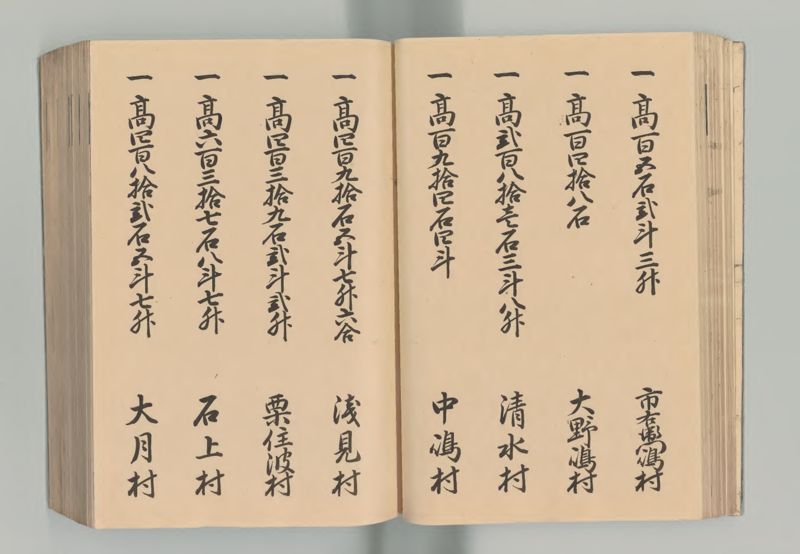 一 髙百五石弐斗三升 市右衛門嶋村
一 髙百四拾八石 大野嶋村
一 髙弐百八拾壱石三斗八升 清水村
一 髙百九拾四石四斗 中嶋村
一 髙四百九拾石五斗七升六合 浅見村
一 髙四百三拾九石弐斗弐升 栗住波村
一 髙六百三拾七石八斗七升 石上村
一 髙四百八拾弐石五斗七升 大月村